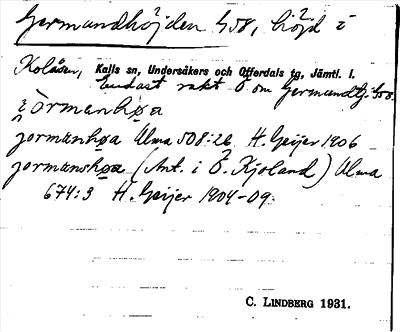 Germandhöjden 458, höjd i
Kolåsen, Kalls sn, Undersåkers och Offerdals tg, Jämtl. l.
Endast rakt Ö om Germandtj. 458.
jormanhøa Ulma 508:26. H. Geijer 1906
jormanshøa (Ant. i Ö. Kjoland) Ulma
674:3 H. Geijer 1904-09.
C. LINDBERG 1931.